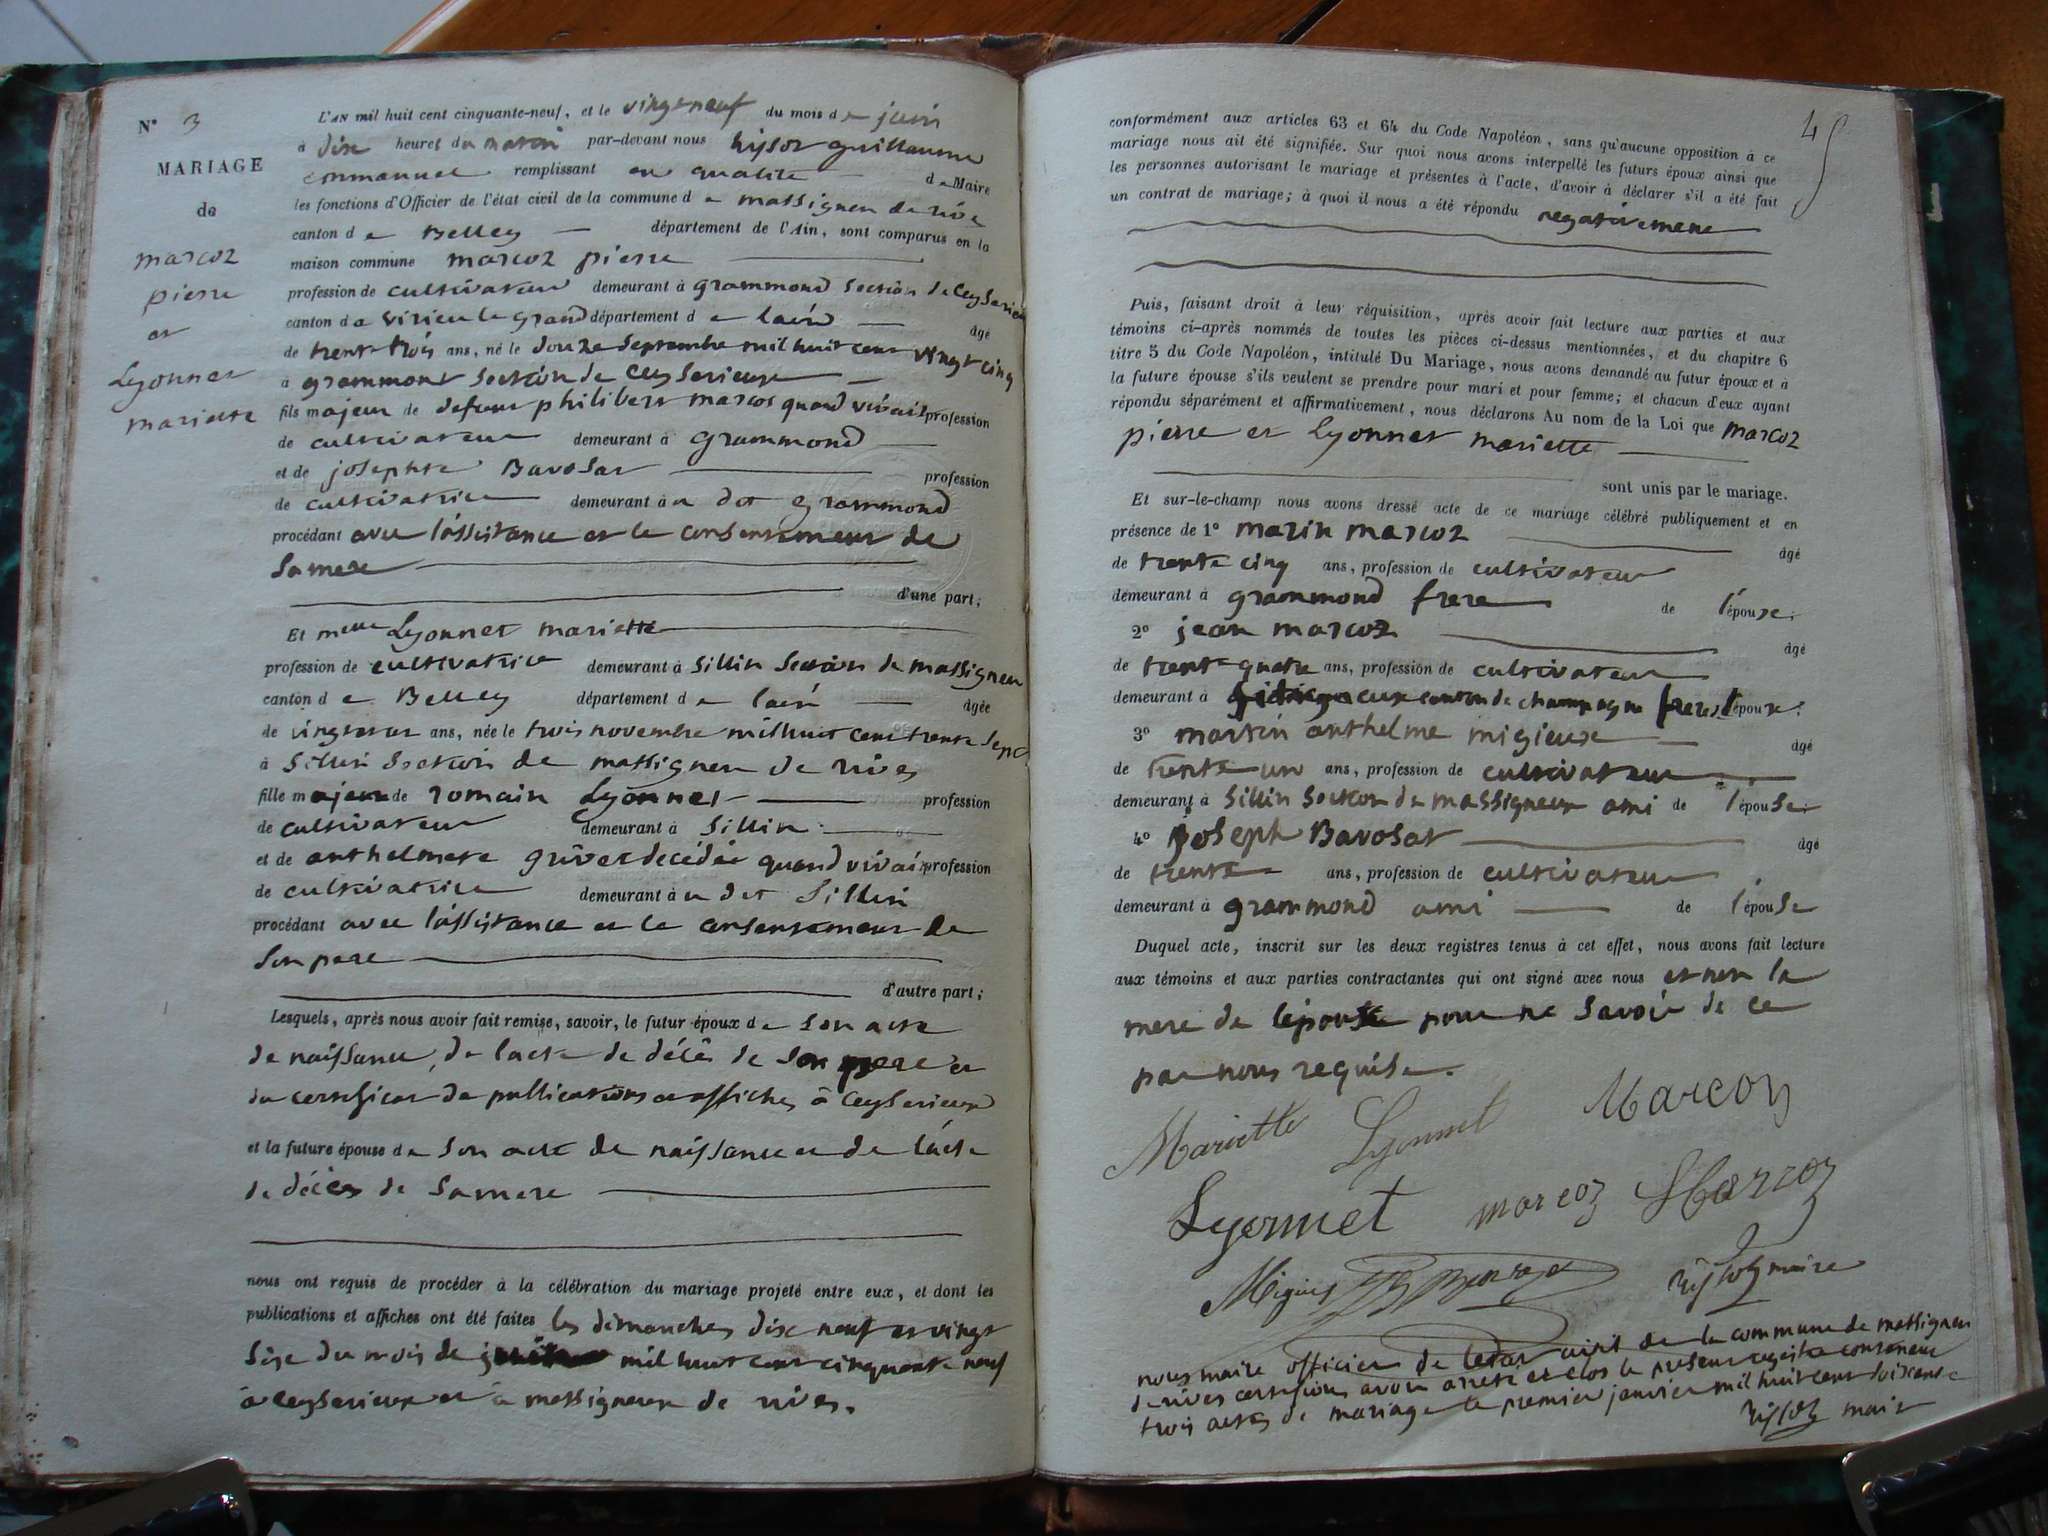 N° 3
MARIAGE
de
marcoz
pierre
et
Lyonnet
mariette
L'AN mil huit cent cinquante-neuf, et le vingt neuf du mois de juin
à dixe heures du matin par-devant nous guillaume
emmanuel remplissant en qualité de Maire
les fonctions d'Officier de l'état civil de la commune de massigneu de rive
canton de Belley département de l'Ain, sont comparus en la
maison commune marcoz pierre
profession de cultivateur demeurant à grammond section de Ceyserieu
canton de virieu le grand département de lain âgé
de trente trois ans, né le douze septembre mil huit cent vingt cinq
à grammont section de Ceyserieux
fils majeur de defunt philibert marcos quand vivait profession
de cultivateur demeurant à grammond
et de josephte Bavosat profession
de cultivatrice demeurant à u dit grammond
procédant avec l'assistance et le consentement de
sa mere
d'une part;
Et melle Lyonnet mariette
profession de cultivatrice demeurant à sillin section de massigneu
canton de Belley département de lain âgée
de vingt et un ans, née le trois novembre mil huit cent trente sept
à sillin section de massigneu de rives
fille majeure de romain Lyonnet profession
de cultivateur demeurant à sillin
et de anthelmete grivet decédée quand vivait profession
de cultivatrice demeurant à u dit Sillin
procédant avec l'assistance et le consentement de
son pere
d'autre part;
Lesquels, après nous avoir fait remise, savoir, le futur époux de son acte
de naissance, de lacte de décès de son pere et
du certificat de publications et affiches à Ceyserieux
et la future épouse de son acte de naissance et de lacte
de décès de sa mere
nous ont requis de procéder à la célébration du mariage projeté entre eux, et dont les
publications et affiches ont été faites les dimanches dixe neuf et vingt
sixe du mois de juin mil huit cent cinquante neuf
à ceyserieux et à massigneux de rives.
45
conformément aux articles 63 et 64 du Code Napoléon, sans qu'aucune opposition à ce
mariage nous ait été signifiée. Sur quoi nous avons interpellé les futurs époux ainsi que
les personnes autorisant le mariage et présentes à l'acte, d'avoir à déclarer s'il a été fait
un contrat de mariage; à quoi il nous a été répondu negativement
Puis, faisant droit à leur réquisition, après avoir fait lecture aux parties et aux
témoins ci-après nommés de toutes les pièces ci-dessus mentionnées, et du chapitre 6
titre 5 du Code Napoléon, intitulé Du Mariage, nous avons demandé au futur époux et à
la future épouse s'ils veulent se prendre pour mari et pour femme; et chacun d'eux ayant
répondu séparément et affirmativement, nous déclarons Au nom de la Loi que marcoz
pierre et Lyonnet mariette
sont unis par le mariage.
Et sur-le-champ nous avons dressé acte de ce mariage célébré publiquement et en
présence de 1° marin marcoz âgé
de trente cinq ans, profession de cultivateur
demeurant à grammond frere de l'épouxe.
2° jean marcoz âgé
de trente quatre ans, profession de cultivateur
demeurant à canton de champagne frere l'épouxe.
3° martin anthelme migieuxe âgé
de trente un ans, profession de cultivateur
demeurant à sillin section de massigneux ami de l'épouse
4° Joseph Bavosat âgé
de trente ans, profession de cultivateur
demeurant à grammond ami de l'épouse
Duquel acte, inscrit sur les deux registres tenus à cet effet, nous avons fait lecture
aux témoins et aux parties contractantes qui ont signé avec nous et non la
mere de lépouxe pour ne savoir de ce
par nous requise.
Mariette Lyonnet Marcoz
Lyonnet marcoz Marcoz
maire
nous maire officier de letat civil de la commune de massigneu
de rives certifions avoir arreté et clos le present registre contenent
trois actes de mariage le premier janvier mil huit cent soixante
maire